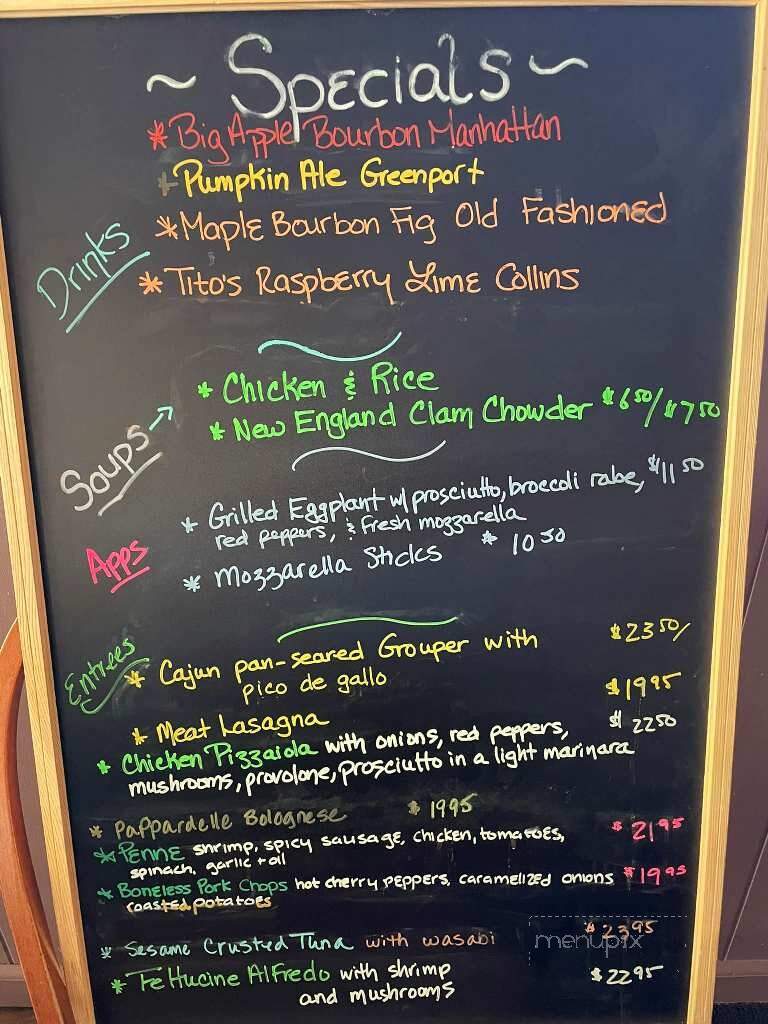 ~ Specials ~
* Big Apple Bourbon Manhattan
* Pumpkin Ale Greenport
* Maple Bourbon Fig Old Fashioned
Drinks
* Tito's Raspberry Lime Collins
* Chicken & Rice
* New England Clam Chowder $6 50/$7 50
Soups →
* Grilled Eggplant w/ prosciutto, broccoli rabe, $11 50
red peppers, & fresh mozzarella
Apps
* Mozzarella Sticks * 10 50
Entrees
* Cajun pan-seared Grouper with $23 50/
pico de gallo
* Meat Lasagna $19 95
* Chicken Pizzaiola with onions, red peppers, $22 50
mushrooms, provolone, prosciutto in a light marinara
* Pappardelle Bolognese $19 95
* Penne shrimp, spicy sausage, chicken, tomatoes, $21 95
spinach, garlic + oil
* Boneless Pork Chops hot cherry peppers, caramelized onions $19 95
roasted potatoes
* Sesame Crusted Tuna with wasabi $23 95
menupix
* Fettucine Alfredo with shrimp $22 95
and mushrooms